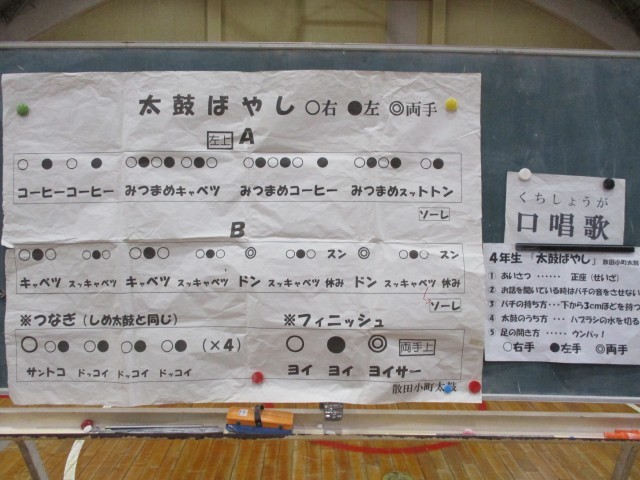 太鼓ばやし ○右 ●左 ◎両手
左上 A
コーヒーコーヒー みつまめキャベツ みつまめコーヒー みつまめスットトン
ソーレ
B
スン スン
キャベツ スッキャベツ キャベツ スッキャベツ ドン スッキャベツ 休み ドン スッキャベツ 休み
ソーレ
※つなぎ(しめ太鼓と同じ)
(×4)
サントコ ドッコイ ドッコイ ドッコイ
※フィニッシュ
両手上
ヨイ ヨイ ヨイサー
散田小町太鼓
くちしょうが
口唱歌
4年生 「太鼓ばやし」 散田小町太鼓
1 あいさつ ‥‥‥ 正座(せいざ)
2 お話を聞いている時はバチの音をさせない
3 バチの持ち方‥‥下から3cmほどを持つ
4 太鼓のうち方‥‥ ハブラシの水を切る
5 足の開き方 ‥‥‥ ウンパッ!
○右手 ●左手 ◎両手